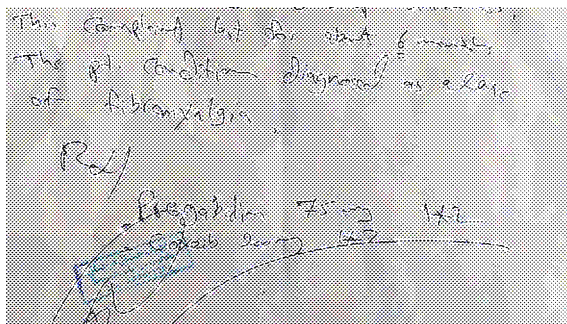 This complaint last for about 6 months,
The pt. condition diagnosed as a case
of fibromyalgia,
Rx/
Pregabalin 75 mg 1x2
200 mg 1x2